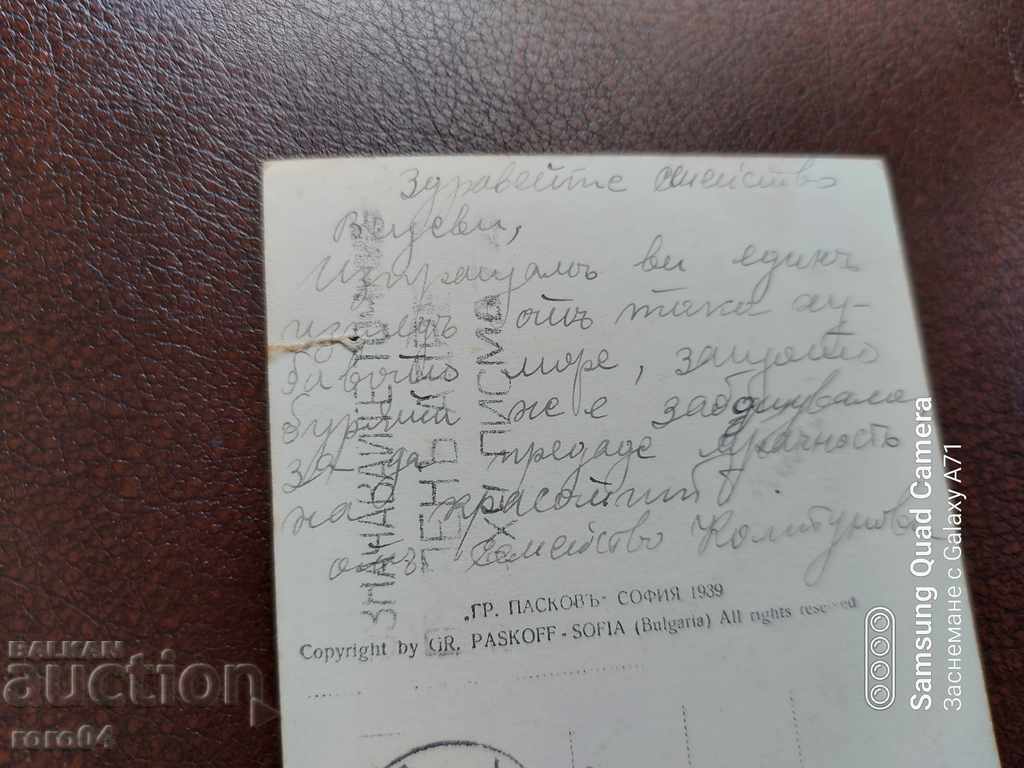 Здравейте семейство
Вецеви,
Изпращамъ ви единъ
изгледъ отъ така ху-
бавото море, защото
же е забулувало
за да предаде мрачность
на красотит
отъ семейство
"ГР. ПАСКОВЪ" СОФИЯ 1939
Copyright by GR. PASKOFF - SOFIA (Bulgaria) All rights reserved
ПИСМА
BALKAN
auction
roro04
Samsung Quad Camera
Заснемане с Galaxy A71